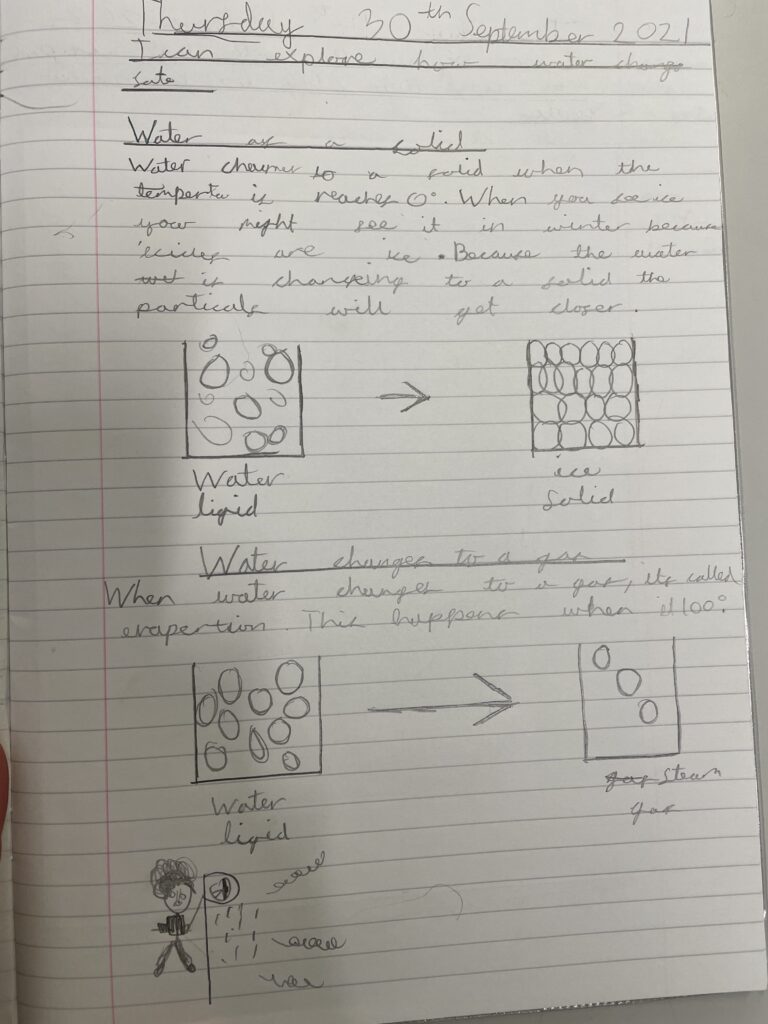 Thursday 30th September 2021
I can explore how water change
sate
Water as a solid
Water to a solid when the
temperta is reaches 0°. When you see ice
your might see it in winter because
icicles are ice. Because the water
is changeing to a solid the
particals will get closer.
Water
liqid
ice
Solid
Water changes to a gas
When water changes to a gas, its called
evapertion. This happens when it 100°
Water
liqid
gas steam
gas